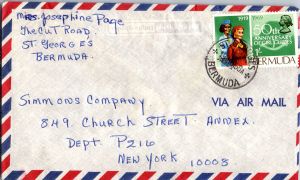 Mrs. Josephine Page
The Cut Road.
St. George's
Bermuda.
1919 1969
50th
ANNIVERSARY
OF GIRL GUIDES
BERMUDA
BERMUDA
VIA AIR MAIL
Simmons Company
849. Church Street Annex.
Dept P216
New York 10008